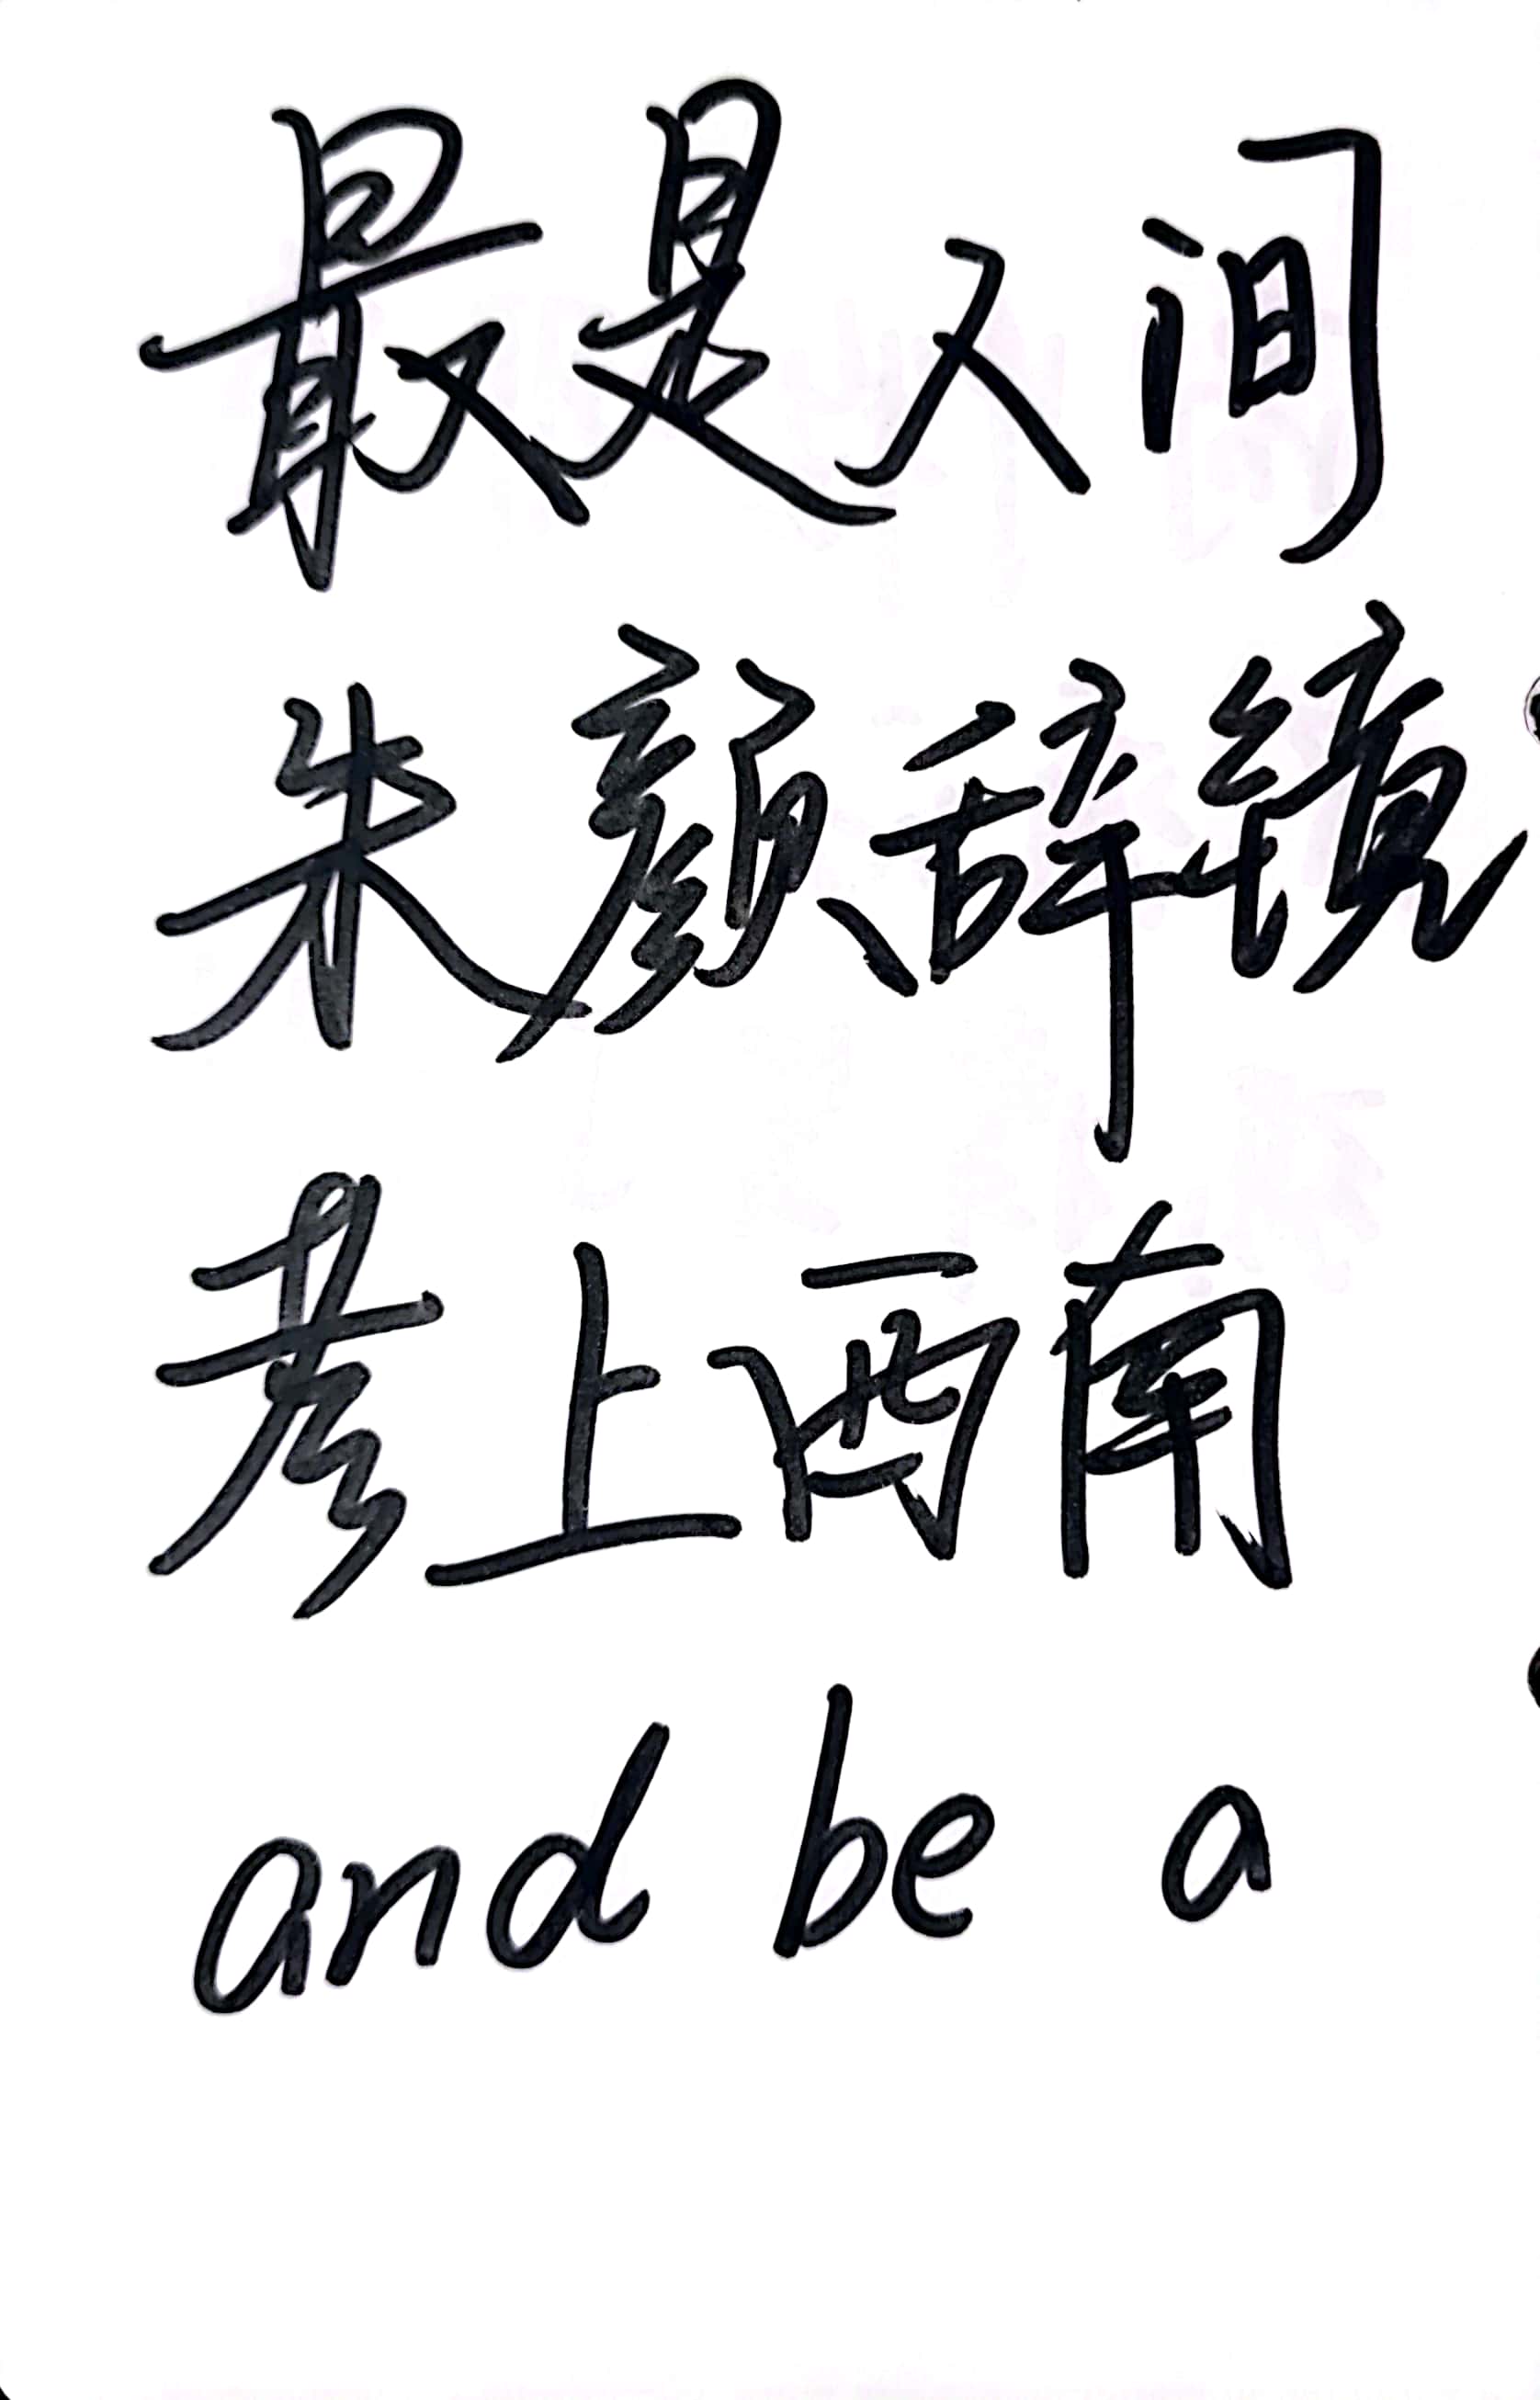 最是人间
朱颜辞镜
考上西南
and be a